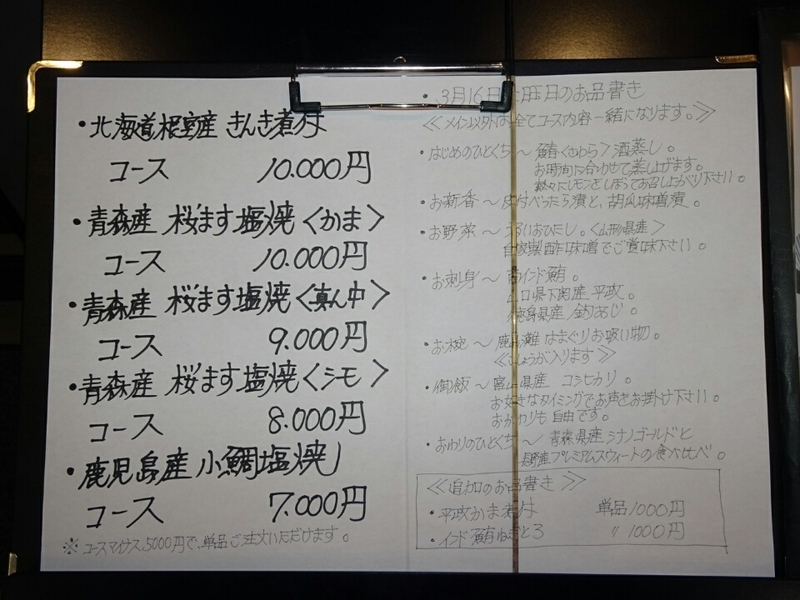 ・北海道根室産 きんき煮付
コース 10.000円
・青森産 桜ます塩焼〈かま〉
コース 10.000円
・青森産 桜ます塩焼〈真ん中〉
コース 9.000円
・青森産 桜ます塩焼〈シモ〉
コース 8.000円
・鹿児島産 小鯛塩焼
コース 7.000円
※コースマイナス5000円で、単品ご注文いただけます。
・3月16日 日のお品書き
≪メイン以外は全てコース内容一緒になります。≫
・はじめのひとくち〜鰆〈さわら〉酒蒸し。
お時間に合わせて蒸し上げます。
にレモンをしぼってお召し上がり下さい。
・お新香〜皮付べったら漬と、胡瓜味噌漬。
・お野菜〜うるいおひたし。〈山形県産〉
自家製酢味噌でご賞味下さい。
・お刺身〜南インド鮪。
山口県下関産 平政。
鹿児島県産 釣あじ。
・お椀〜鹿島灘はまぐりお吸い物。
≪しょうが入ります≫
・御飯〜富山県産 コシヒカリ。
お好きなタイミングでお声をお掛け下さい。
おかわりも自由です。
・おわりのひとくち〜青森県産シナノゴールドと
長野産プレミアムスウィートの食べ比べ。
≪追加のお品書き≫
・平政かま煮付 単品1000円
・インド鮪ねぎとろ 〃1000円